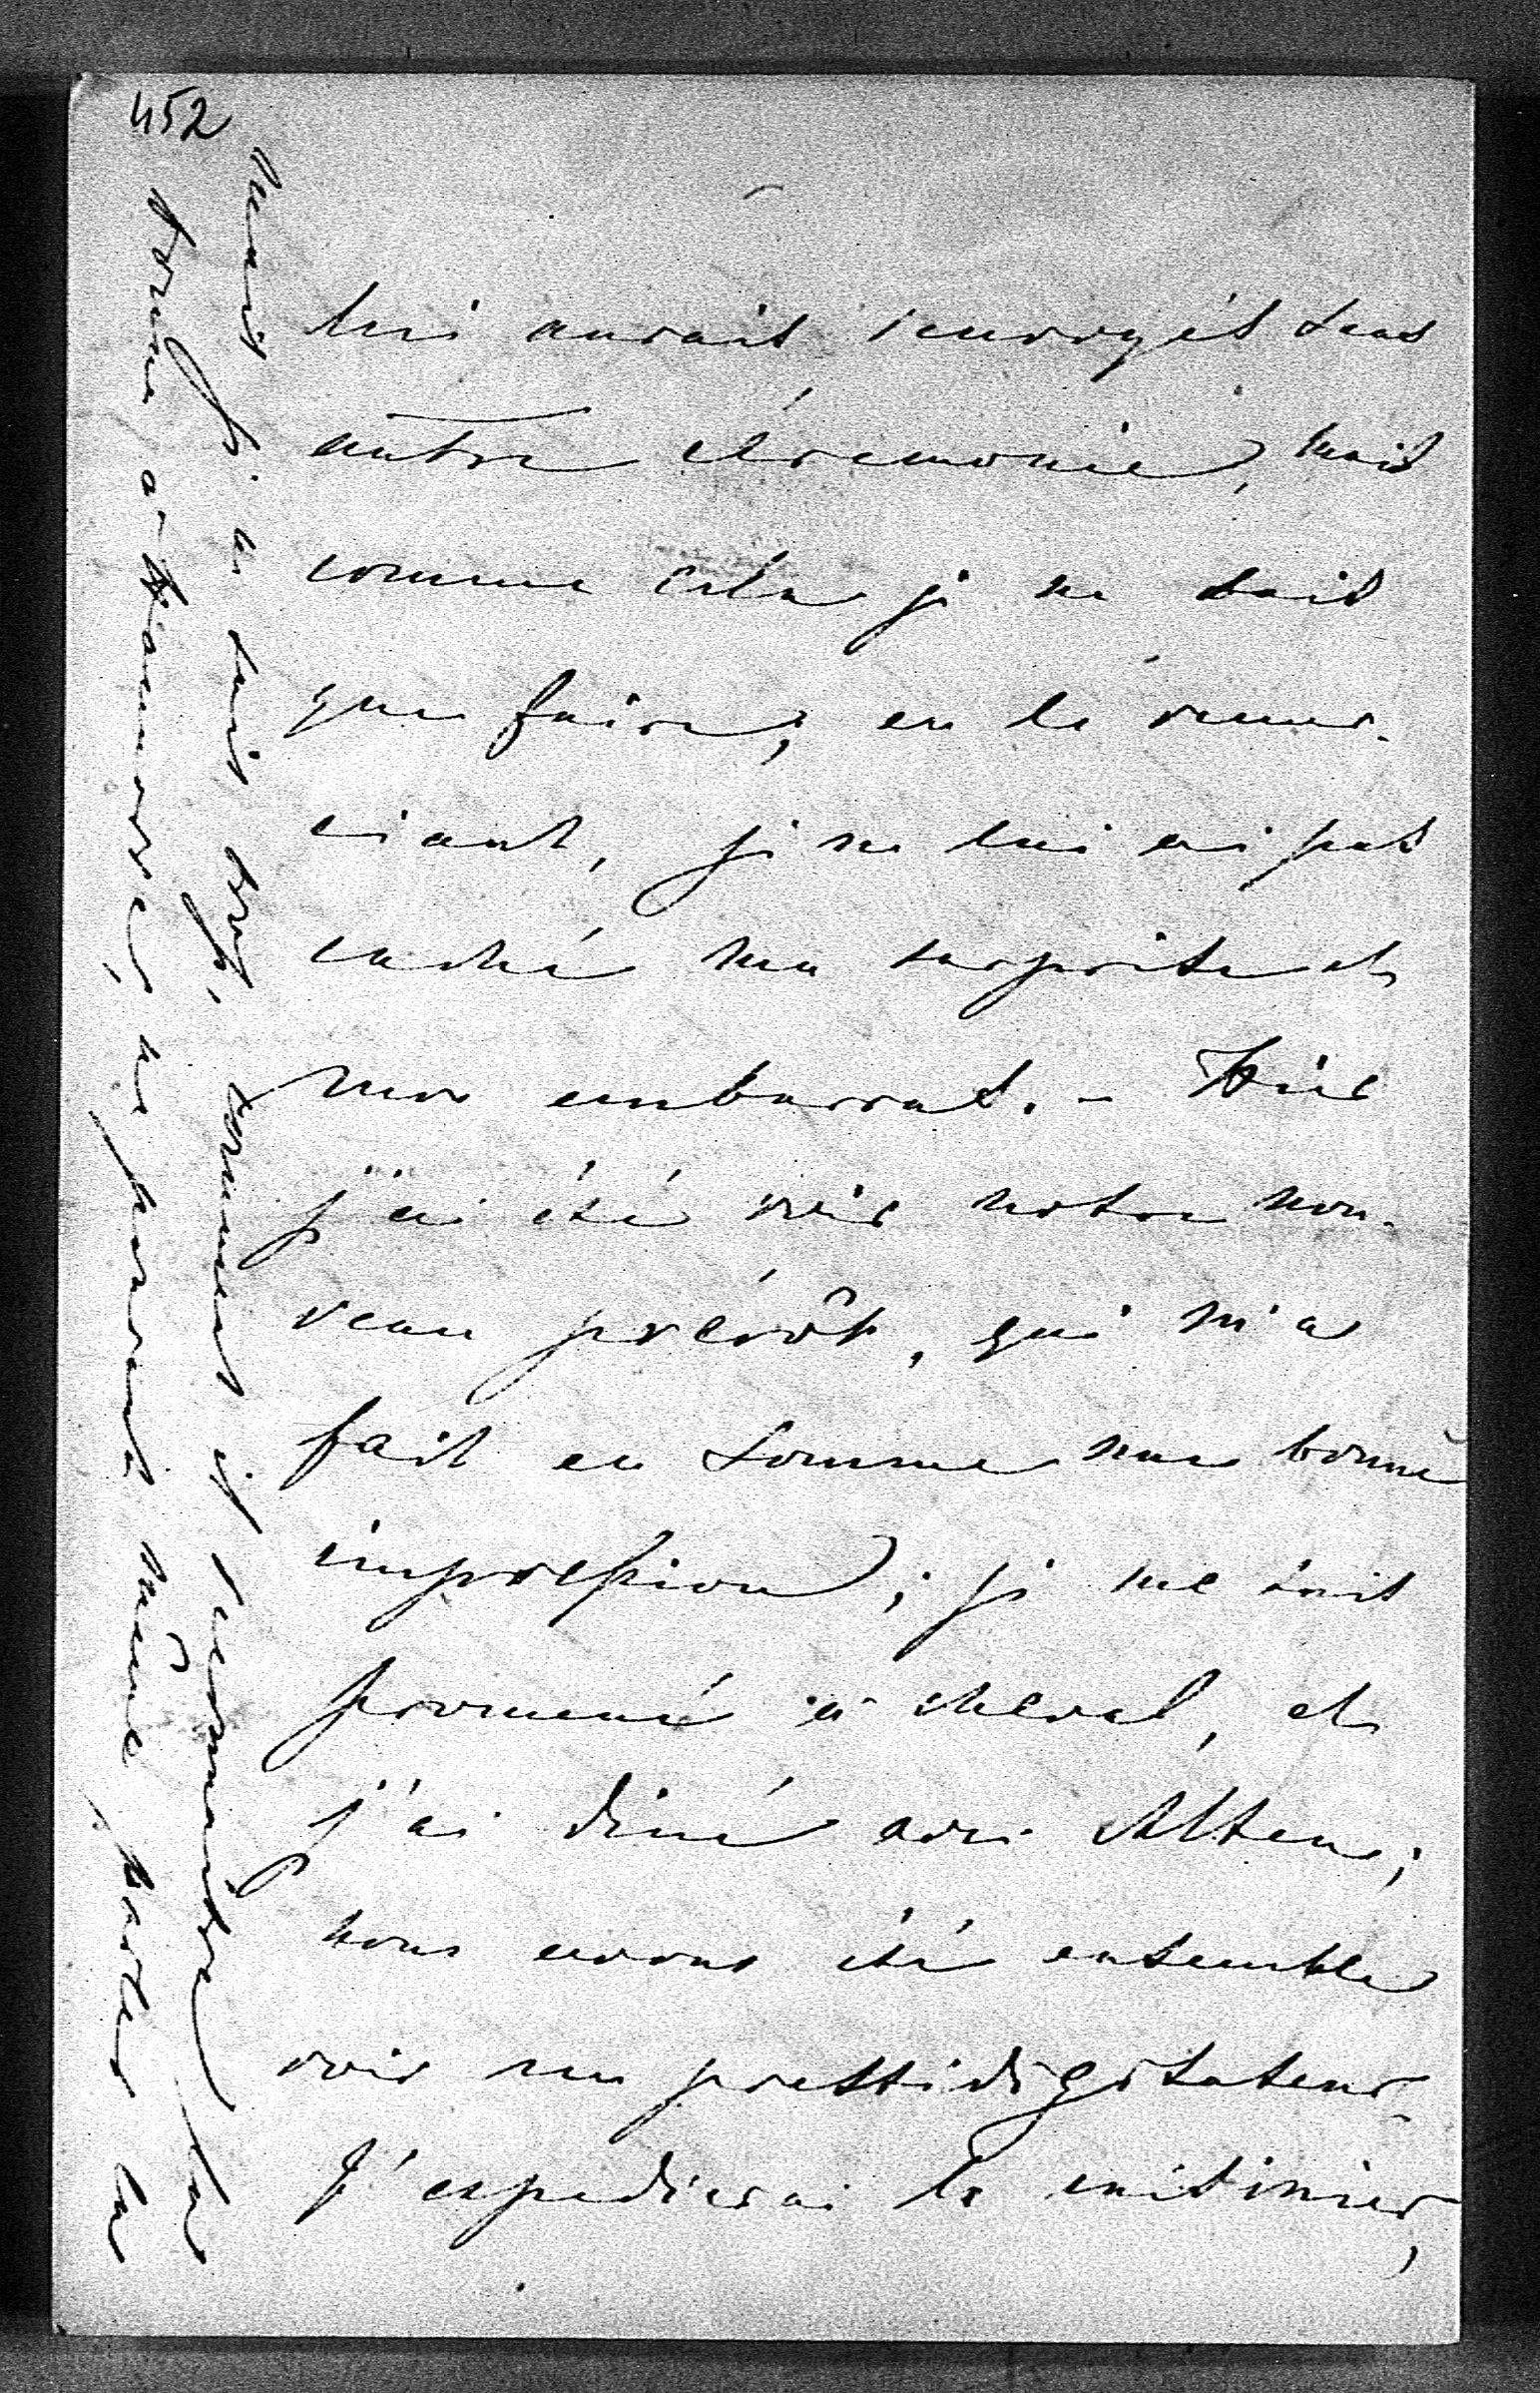 452
lui aurais renvoyés sans
autre cérémonie, mais
comme cela je ne sais
que faire; en le remer-
ciant, je ne lui ai pas
caché ma surprise et
mon embarras. - Hier
j'ai été voir notre nou-
veau prévôt, qui m'a
fait en somme une bonne
impression; je me suis
promené à cheval, et
j'ai diné avec Alten;
nous avons été ensemble
voir un prestidigitateur.
J'expedierai le cuisinier,
mais je ne sais trop, comment il
prendra la
forme a-
ne parlant même pas le